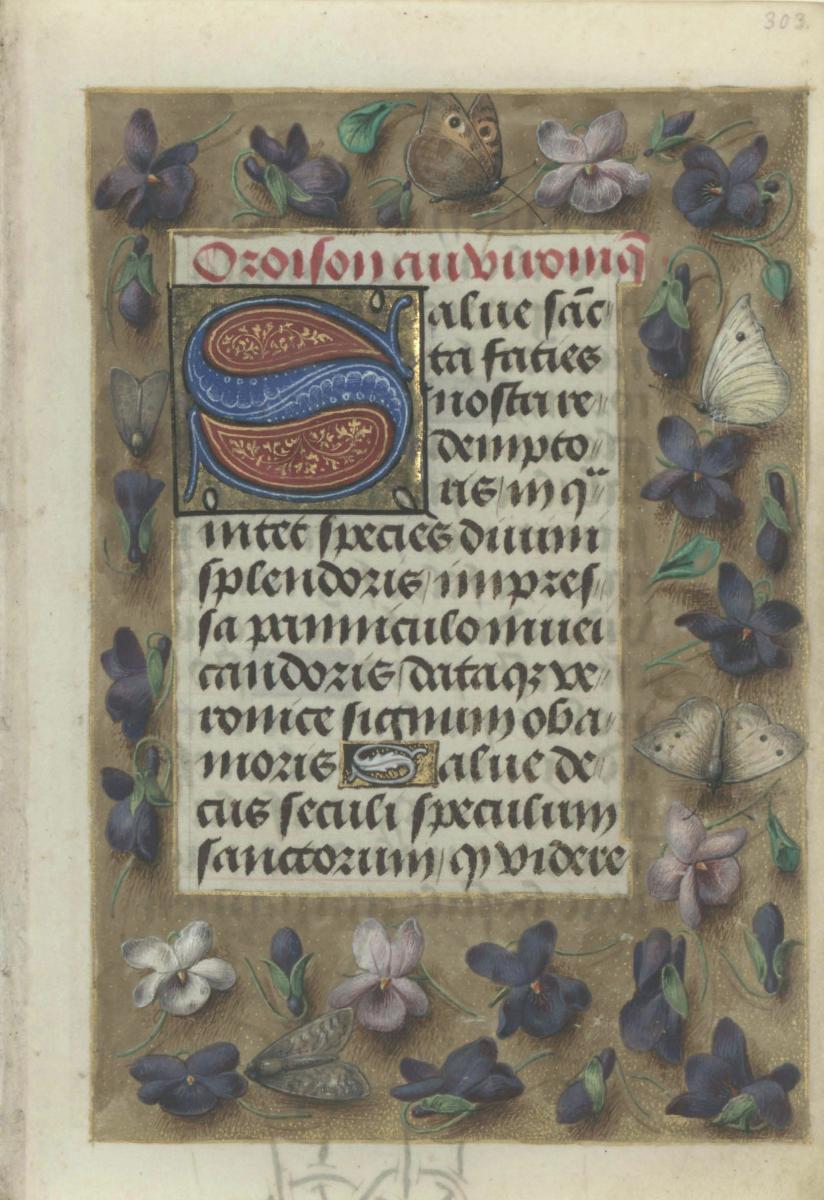 303.
Oroison au viromiq̄
Salue sāc-
ta facies
nostri re-
dempto-
ris in q̄
intet species diuini
splendoris impres-
sa panniculo niuei
candoris dataqꝫ ve-
ronice signum ob a-
moris Salue de-
cus seculi speculum
sanctorum q̄ videre